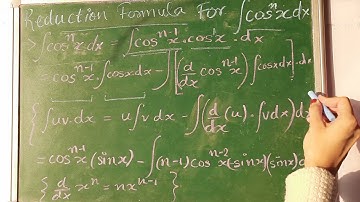 Reduction Formula For ∫cosⁿx dx
> ∫cosⁿx·dx ∫cosⁿ⁻¹x·cos'x·dx
= cosⁿ⁻¹x·∫cosx·dx - ∫[(d/dx cosⁿ⁻¹x)∫cosx dx]·dx
{∫uv·dx = u∫v·dx - ∫(d/dx(u)·∫vdx)d
= cosⁿ⁻¹x(sinx) - ∫(n-1)cosⁿ⁻²x(-sinx)(sinx)d
{d/dx xⁿ = nxⁿ⁻¹}